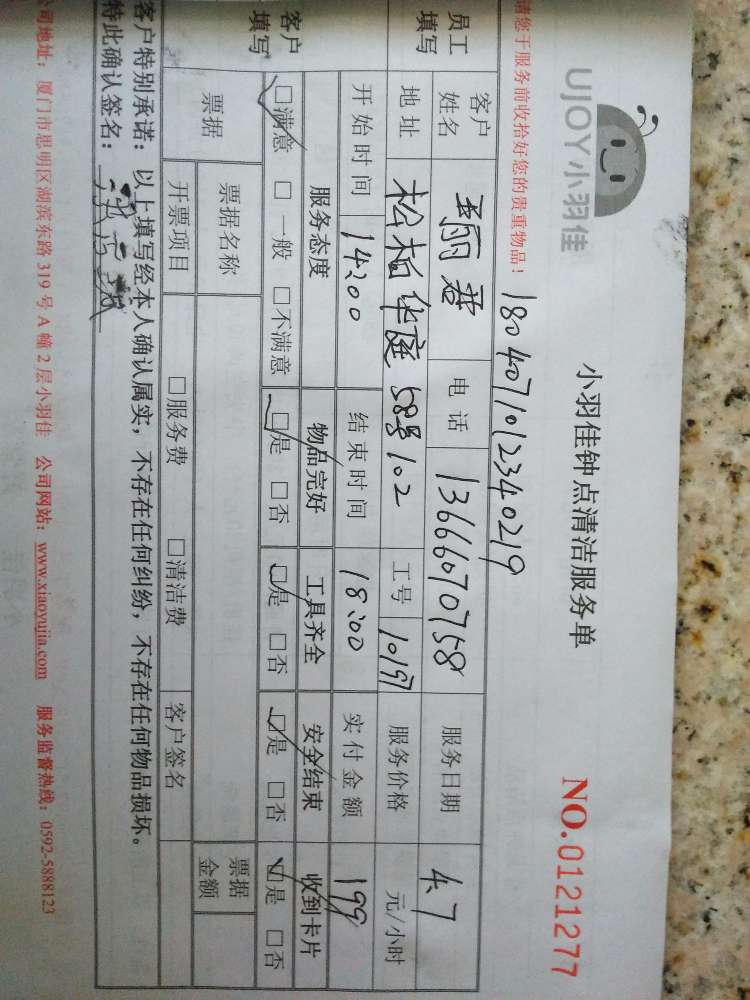 UJOY小羽佳
小羽佳钟点清洁服务单
NO.0121277
请您于服务前收拾好您的贵重物品!
1804071012340219
员工填写 客户姓名 丽君 电话 13666070758 服务日期 4.7
地址 松柏华庭58号102 工号 10197 服务价格 元/小时
开始时间 14:00 结束时间 18:00 实付金额 199
客户填写 服务态度 物品完好 工具齐全 安全结束 收到卡片
☑满意 □一般 □不满意 ☑是 □否 ☑是 □否 ☑是 □否 ☑是 □否
票据 票据名称 □服务费 □清洁费 客户签名 票据金额
开票项目
客户特别承诺:以上填写经本人确认属实,不存在任何纠纷,不存在任何物品损坏。
特此确认签名:
公司地址:厦门市思明区湖滨东路319号A幢2层小羽佳 公司网站:www.xiaoyujia.com 服务监督热线:0592-5888123